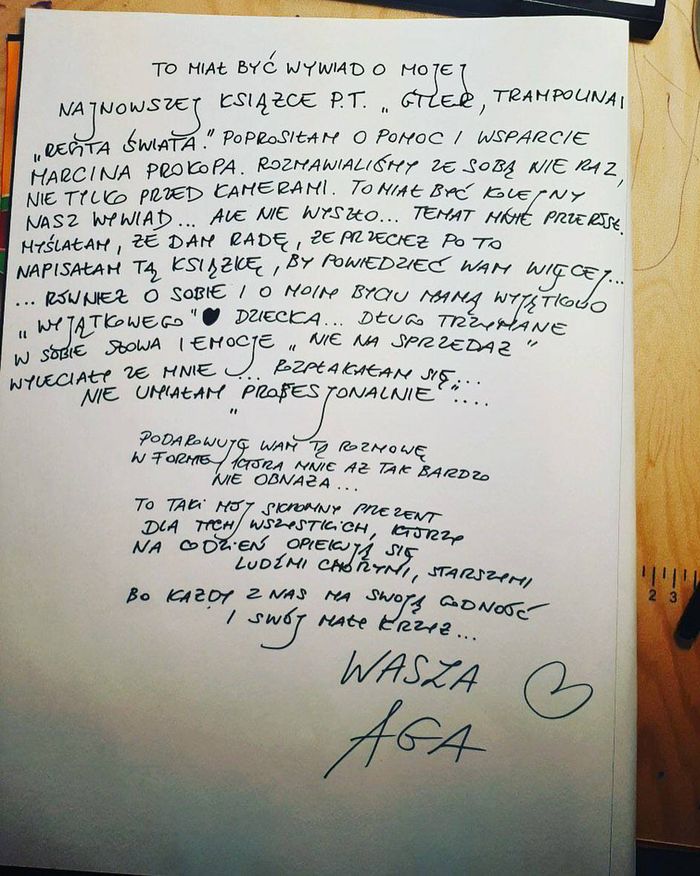 TO MIAŁ BYĆ WYWIAD O MOJEJ
NAJNOWSZEJ KSIĄŻCE P.T. „GTLER, TRAMPOLINA I
„RESZTA ŚWIATA." POPROSIŁAM O POMOC I WSPARCIE
MARCINA PROKOPA. ROZMAWIALIŚMY ZE SOBĄ NIE RAZ,
NIE TYLKO PRZED KAMERAMI. TO MIAŁ BYĆ KOLEJNY
NASZ WYWIAD... ALE NIE WYSZŁO... TEMAT MNIE PRZERÓSŁ.
MYŚLAŁAM, ŻE DAM RADĘ, ŻE PRZECIEŻ PO TO
NAPISAŁAM TĄ KSIĄŻKĘ, BY POWIEDZIEĆ WAM WIĘCEJ...
... RÓWNIEŻ O SOBIE I O MOIM BYCIU MAMĄ WYJĄTKOWO
„WYJĄTKOWEGO" ♥ DZIECKA... DŁUGO TRZYMANE
W SOBIE SŁOWA I EMOCJE „NIE NA SPRZEDAŻ"
WYLECIAŁY ZE MNIE ... ROZPŁAKAŁAM SIĘ....
NIE UMIAŁAM „PROFESJONALNIE"....
PODAROWUJĘ WAM TĄ ROZMOWĘ
W FORMIE, KTÓRA MNIE AŻ TAK BARDZO
NIE OBNAŻA...
TO TAKI MÓJ SKROMNY PREZENT
DLA TYCH WSZYSTKICH, KTÓRZY
NA CO DZIEŃ OPIEKUJĄ SIĘ
LUDŹMI CHORYMI, STARSZYMI
BO KAŻDY Z NAS MA SWOJĄ GODNOŚĆ
I SWÓJ MAŁY KRZYŻ...
WASZA
AGA
2 3